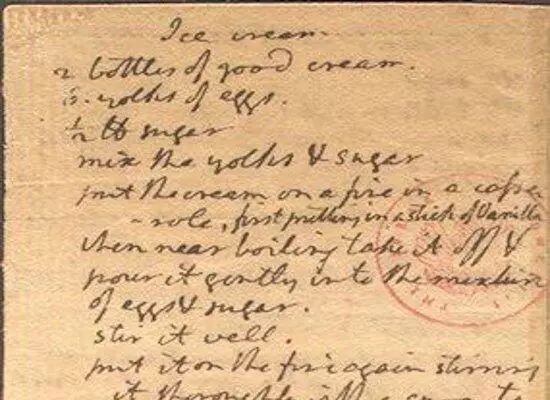 Ice cream.
2 bottles of good cream.
6. yolks of eggs.
1/2 lb sugar
mix the yolks & sugar
put the cream on a fire in a casse
- role, first putting in a stick of Vanilla
when near boiling take it off &
pour it gently into the mixture
of eggs & sugar.
stir it well.
put it on the fire again stirring
it thoroughly with a spoon to